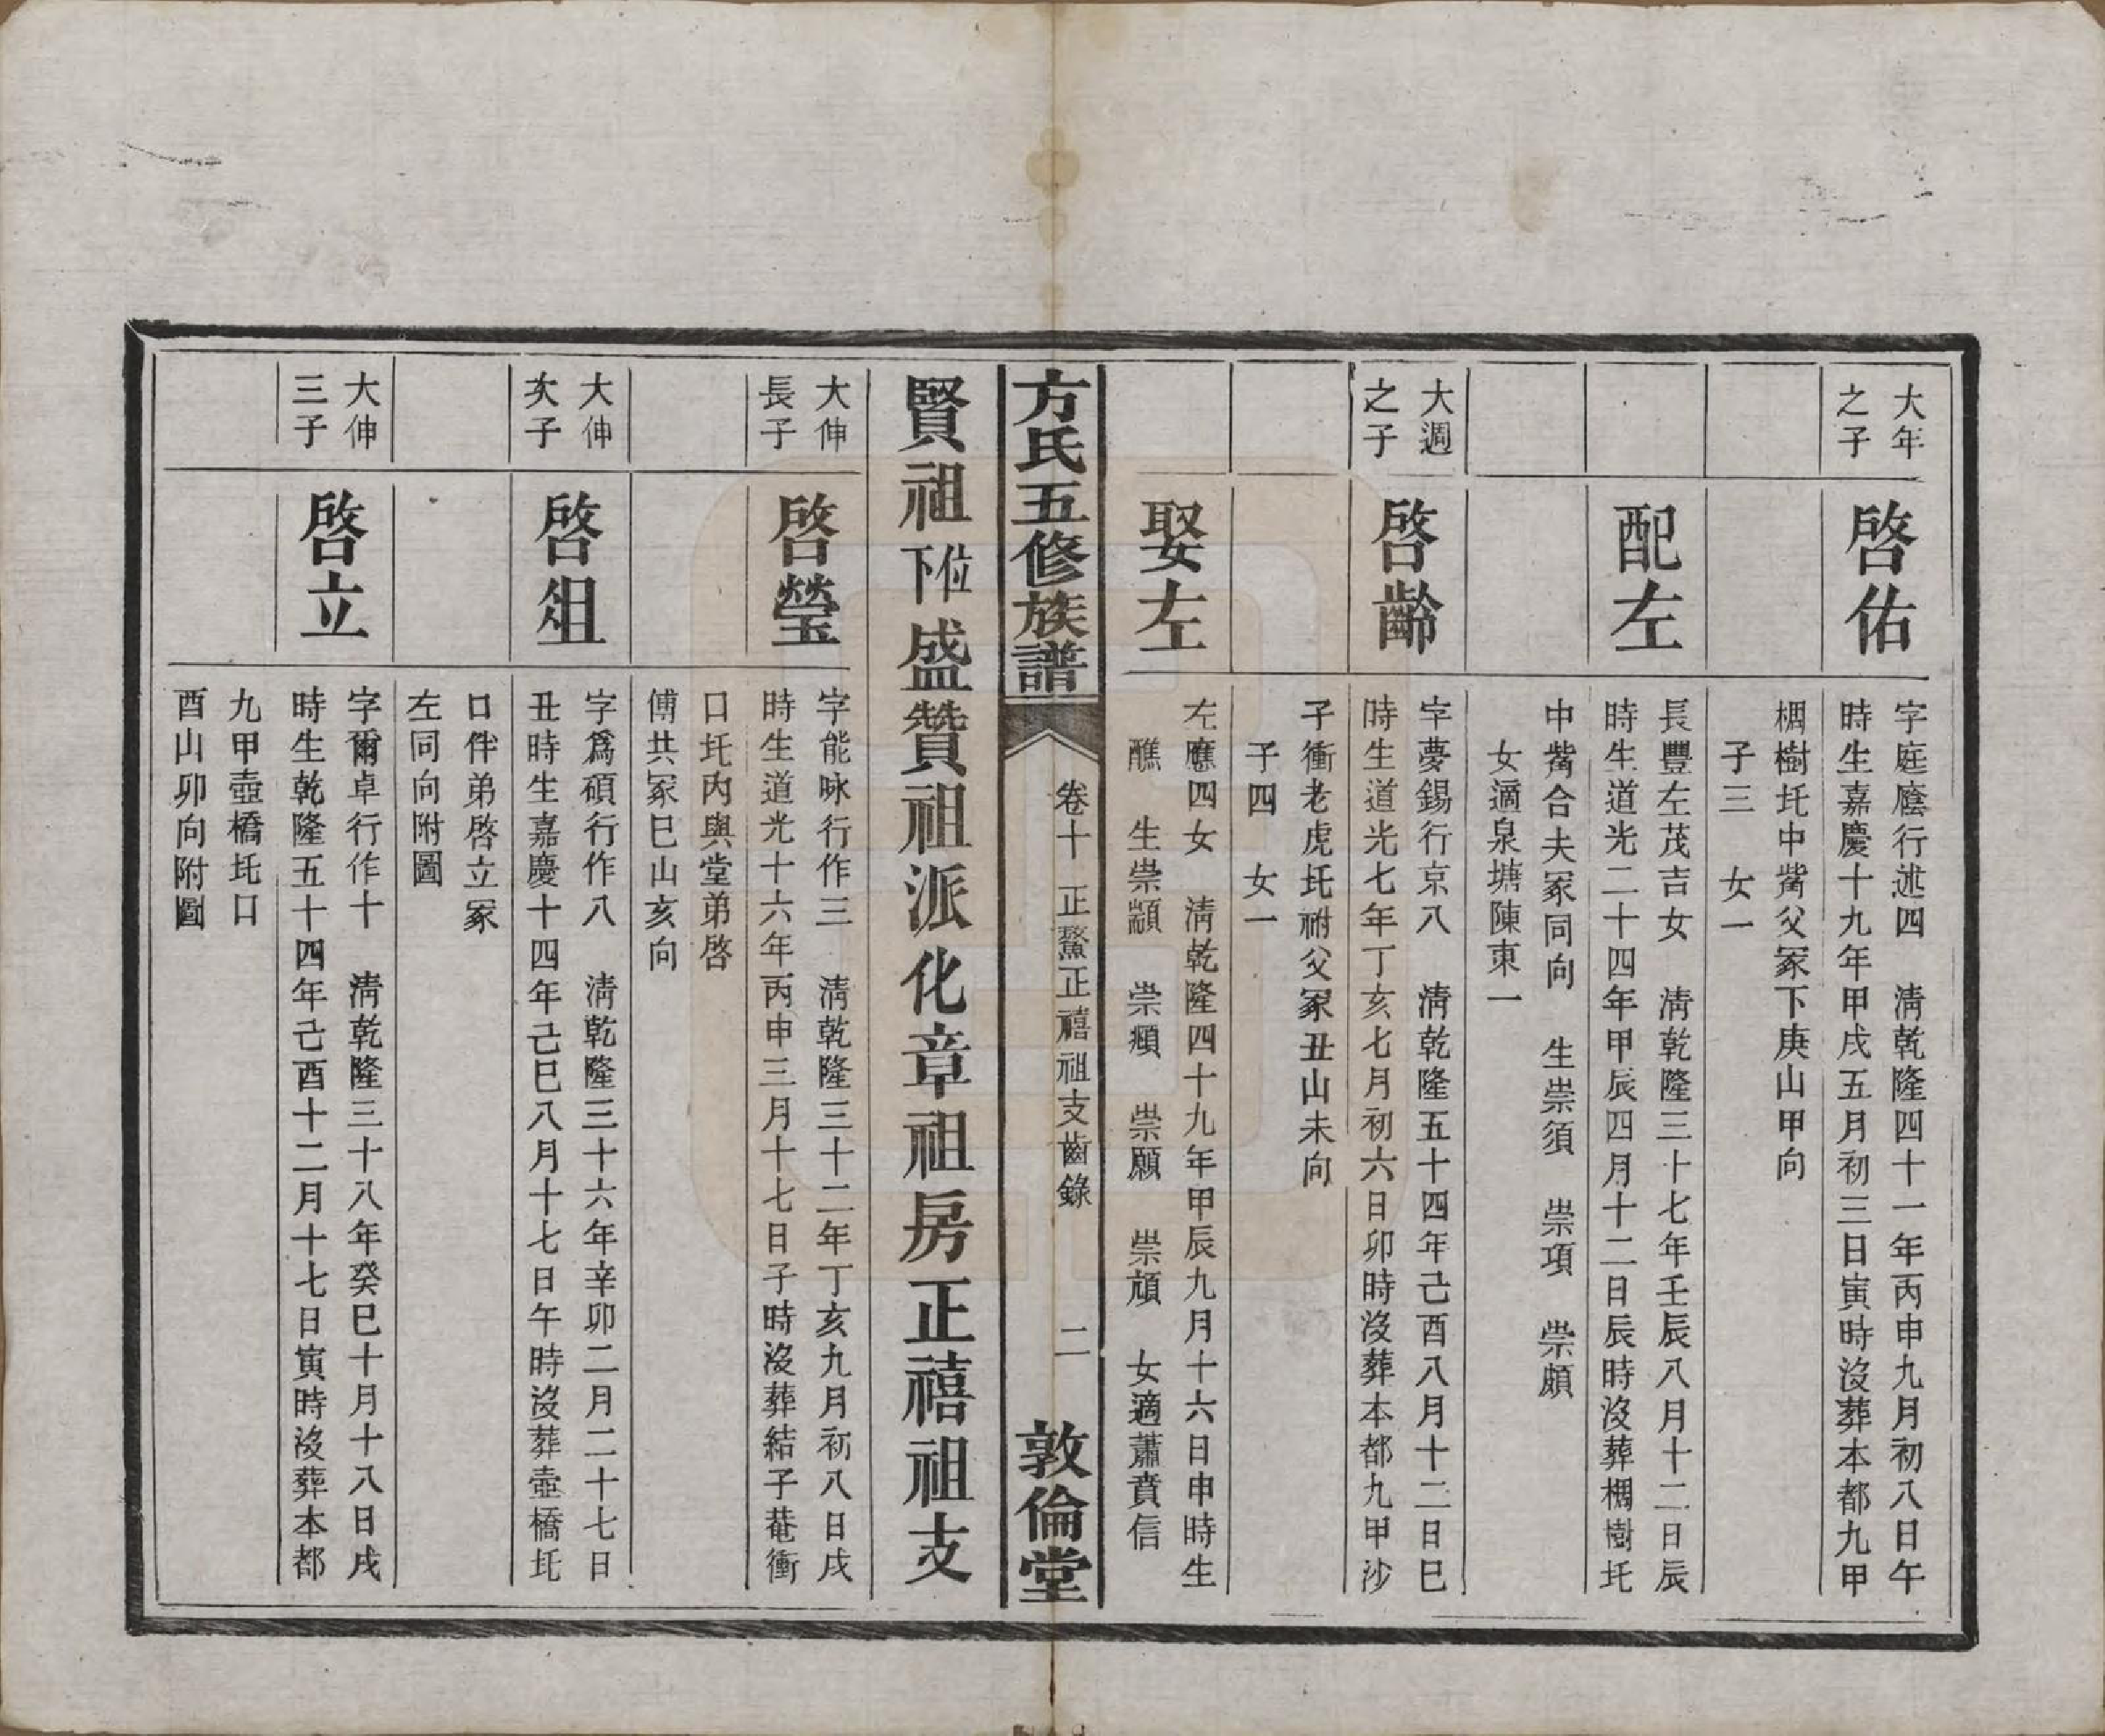 大年
之子
啓佑
字庭廕行述四　淸乾隆四十一年丙申九月初八日午
時生嘉慶十九年甲戌五月初三日寅時沒葬本都九甲
椆樹圫中觜父冢下庚山甲向
子三　女一
配左
長豐左茂吉女　淸乾隆三十七年壬辰八月十二日辰
時生道光二十四年甲辰四月十二日辰時沒葬椆樹圫
中觜合夫冢同向　生崇須　崇項　崇頗
女適泉塘陳東一
大週
之子
啓齡
字夢錫行京八　淸乾隆五十四年己酉八月十二日巳
時生道光七年丁亥七月初六日卯時沒葬本都九甲沙
子衝老虎圫祔父冢丑山未向
子四　女一
娶左
左應四女　淸乾隆四十九年甲辰九月十六日申時生
醮　生崇顓　崇　崇願　崇頎　女適蕭賁信
方氏五修族譜
卷十　正鰲正禧祖支齒錄
二
敦倫堂
賢祖位下盛贊祖派化章祖房正禧祖支
大伸
長子
啓瑩
字能咏行作三　淸乾隆三十二年丁亥九月初八日戌
時生道光十六年丙申三月十七日子時沒葬結子菴衝
口圫內與堂弟啓
傅共冢巳山亥向
大伸
次子
啓俎
字爲碩行作八　淸乾隆三十六年辛卯二月二十七日
丑時生嘉慶十四年己巳八月十七日午時沒葬壺橋圫
口伴弟啓立冢
左同向附圖
大伸
三子
啓立
字爾卓行作十　淸乾隆三十八年癸巳十月十八日戌
時生乾隆五十四年己酉十二月十七日寅時沒葬本都
九甲壺橋圫口
酉山卯向附圖